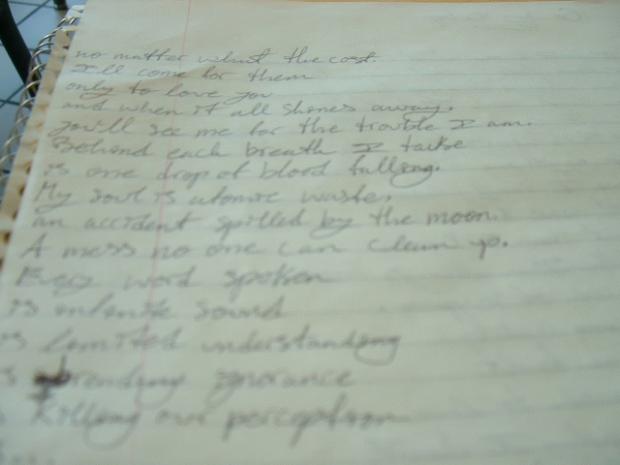 no matter what the cost.
I'll come for them
only to love you
and when it all shines away.
you'll see me for the trouble I am.
Behind each breath I take
is one drop of blood falling.
My soul is atomic waste.
an accident spilled by the moon.
A mess no one can clean up.
Every word spoken
is infinite sound
is limited understanding
ignorance
killing our perception